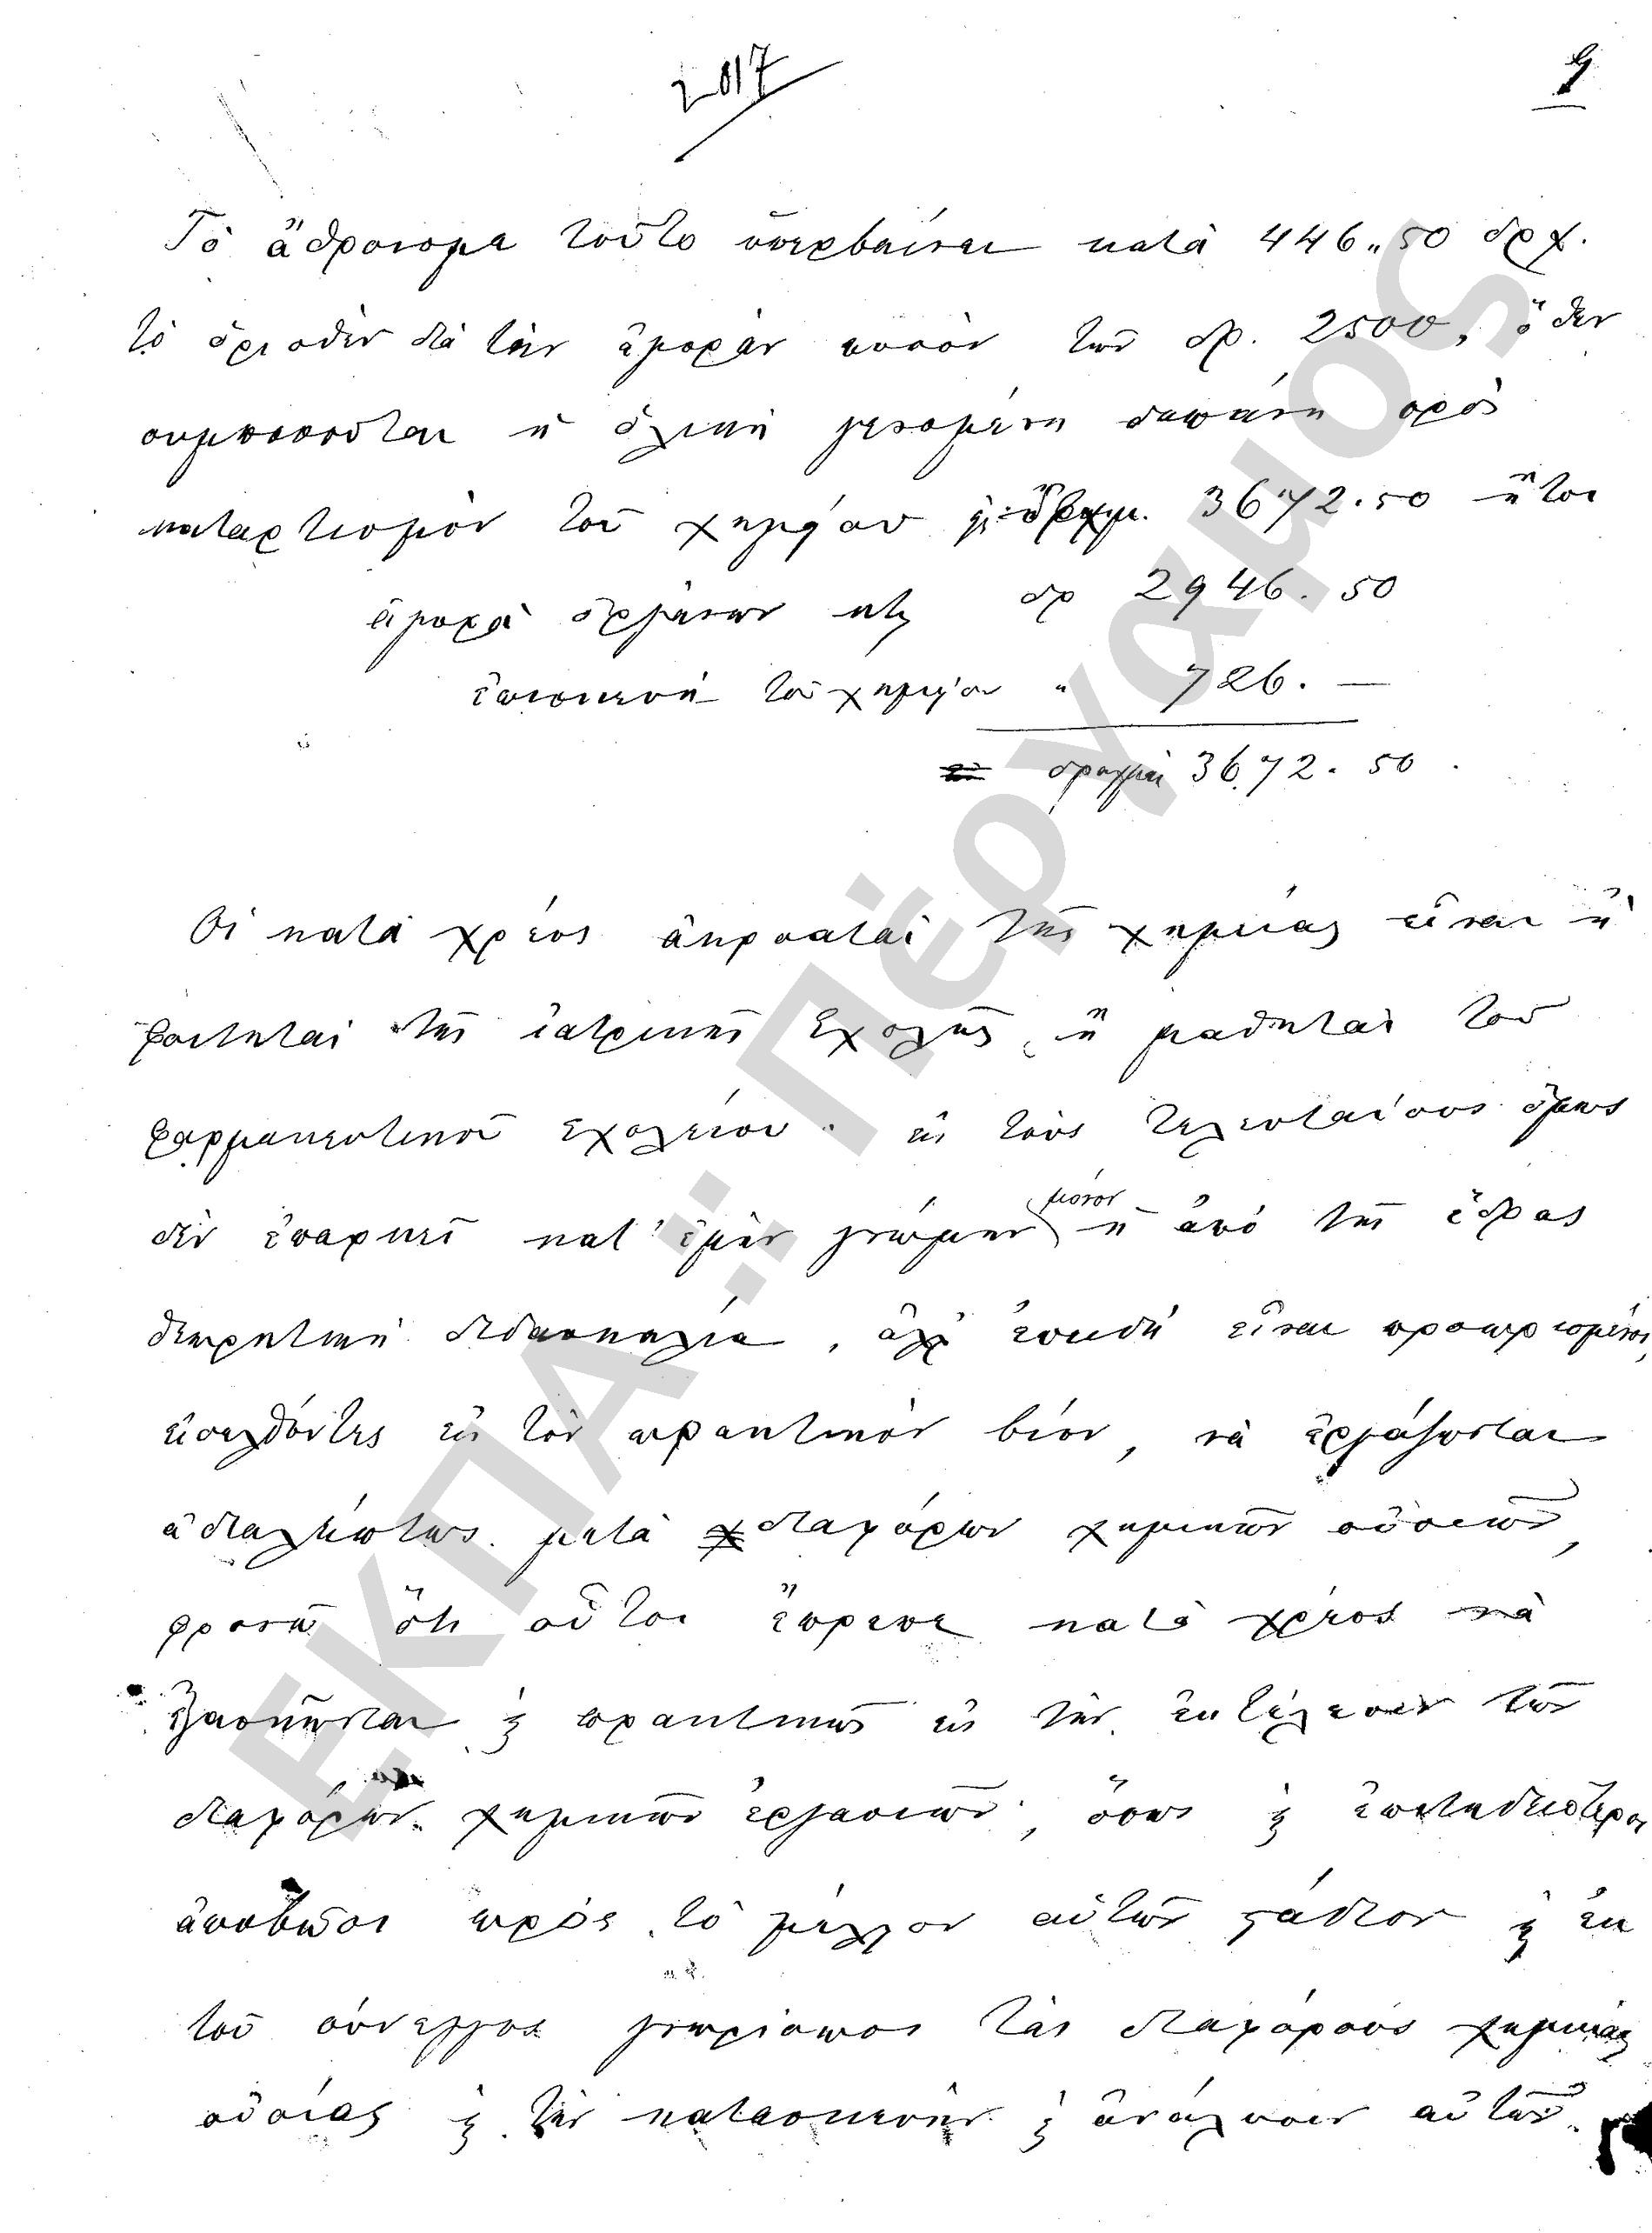 2017
9
Τὸ ἄθροισμα τοῦτο ὑπερβαίνει κατὰ 446„50 δρχ.
τὸ ὁρισθὲν διὰ τὴν ἀγορὰν ποσὸν τῶν δρ. 2500, ὅθεν
συμποσοῦται ἡ ὁλικὴ γενομένη δαπάνη πρὸς
καταρτισμὸν τοῦ χημείου δραχμ. 3672.50 ἤτοι
ἀγορὰ ὀργάνων κτλ δρ 2946.50
ἐπισκευὴ τοῦ χημείου " 726.—
δραχμαὶ 3672.50.
Οἱ κατὰ χρέος ἀκροαταὶ τῆς χημείας εἶναι ἢ
φοιτηταὶ τῆς ἰατρικῆς Σχολῆς, ἢ μαθηταὶ τοῦ
φαρμακευτικοῦ Σχολείου· εἰς τοὺς τελευταίους ὅμως
δὲν ἐπαρκεῖ κατ' ἐμὴν γνώμην μόνον ἡ ἀπὸ τῆς ἕδρας
θεωρητικὴ διδασκαλία, ἀλλ' ἐπειδὴ εἶναι προωρισμένοι,
εἰσελθόντες εἰς τὸν πρακτικὸν βίον, νὰ ἐργάζωνται
ἀδιαλείπτως μετὰ διαφόρων χημικῶν οὐσιῶν,
φρονῶ ὅτι οὗτοι ἔπρεπε κατὰ χρέος νὰ
ἐξασκῶνται ϗ πρακτικῶς εἰς τὴν ἐκτέλεσιν τῶν
διαφόρων χημικῶν ἐργασιῶν, ὅπως ϗ ἐπιτηδειότεροι
ἀποβῶσι πρὸς τὸ μέλλον αὐτῶν στάδιον ϗ ἐκ
τοῦ σύνεγγυς γνωρίσωσι τὰς διαφόρους χημικὰς
οὐσίας ϗ τὴν κατασκευὴν ϗ ἀνάλυσιν αὐτῶν.
ΕΚΠΑ :: Πέργαμος